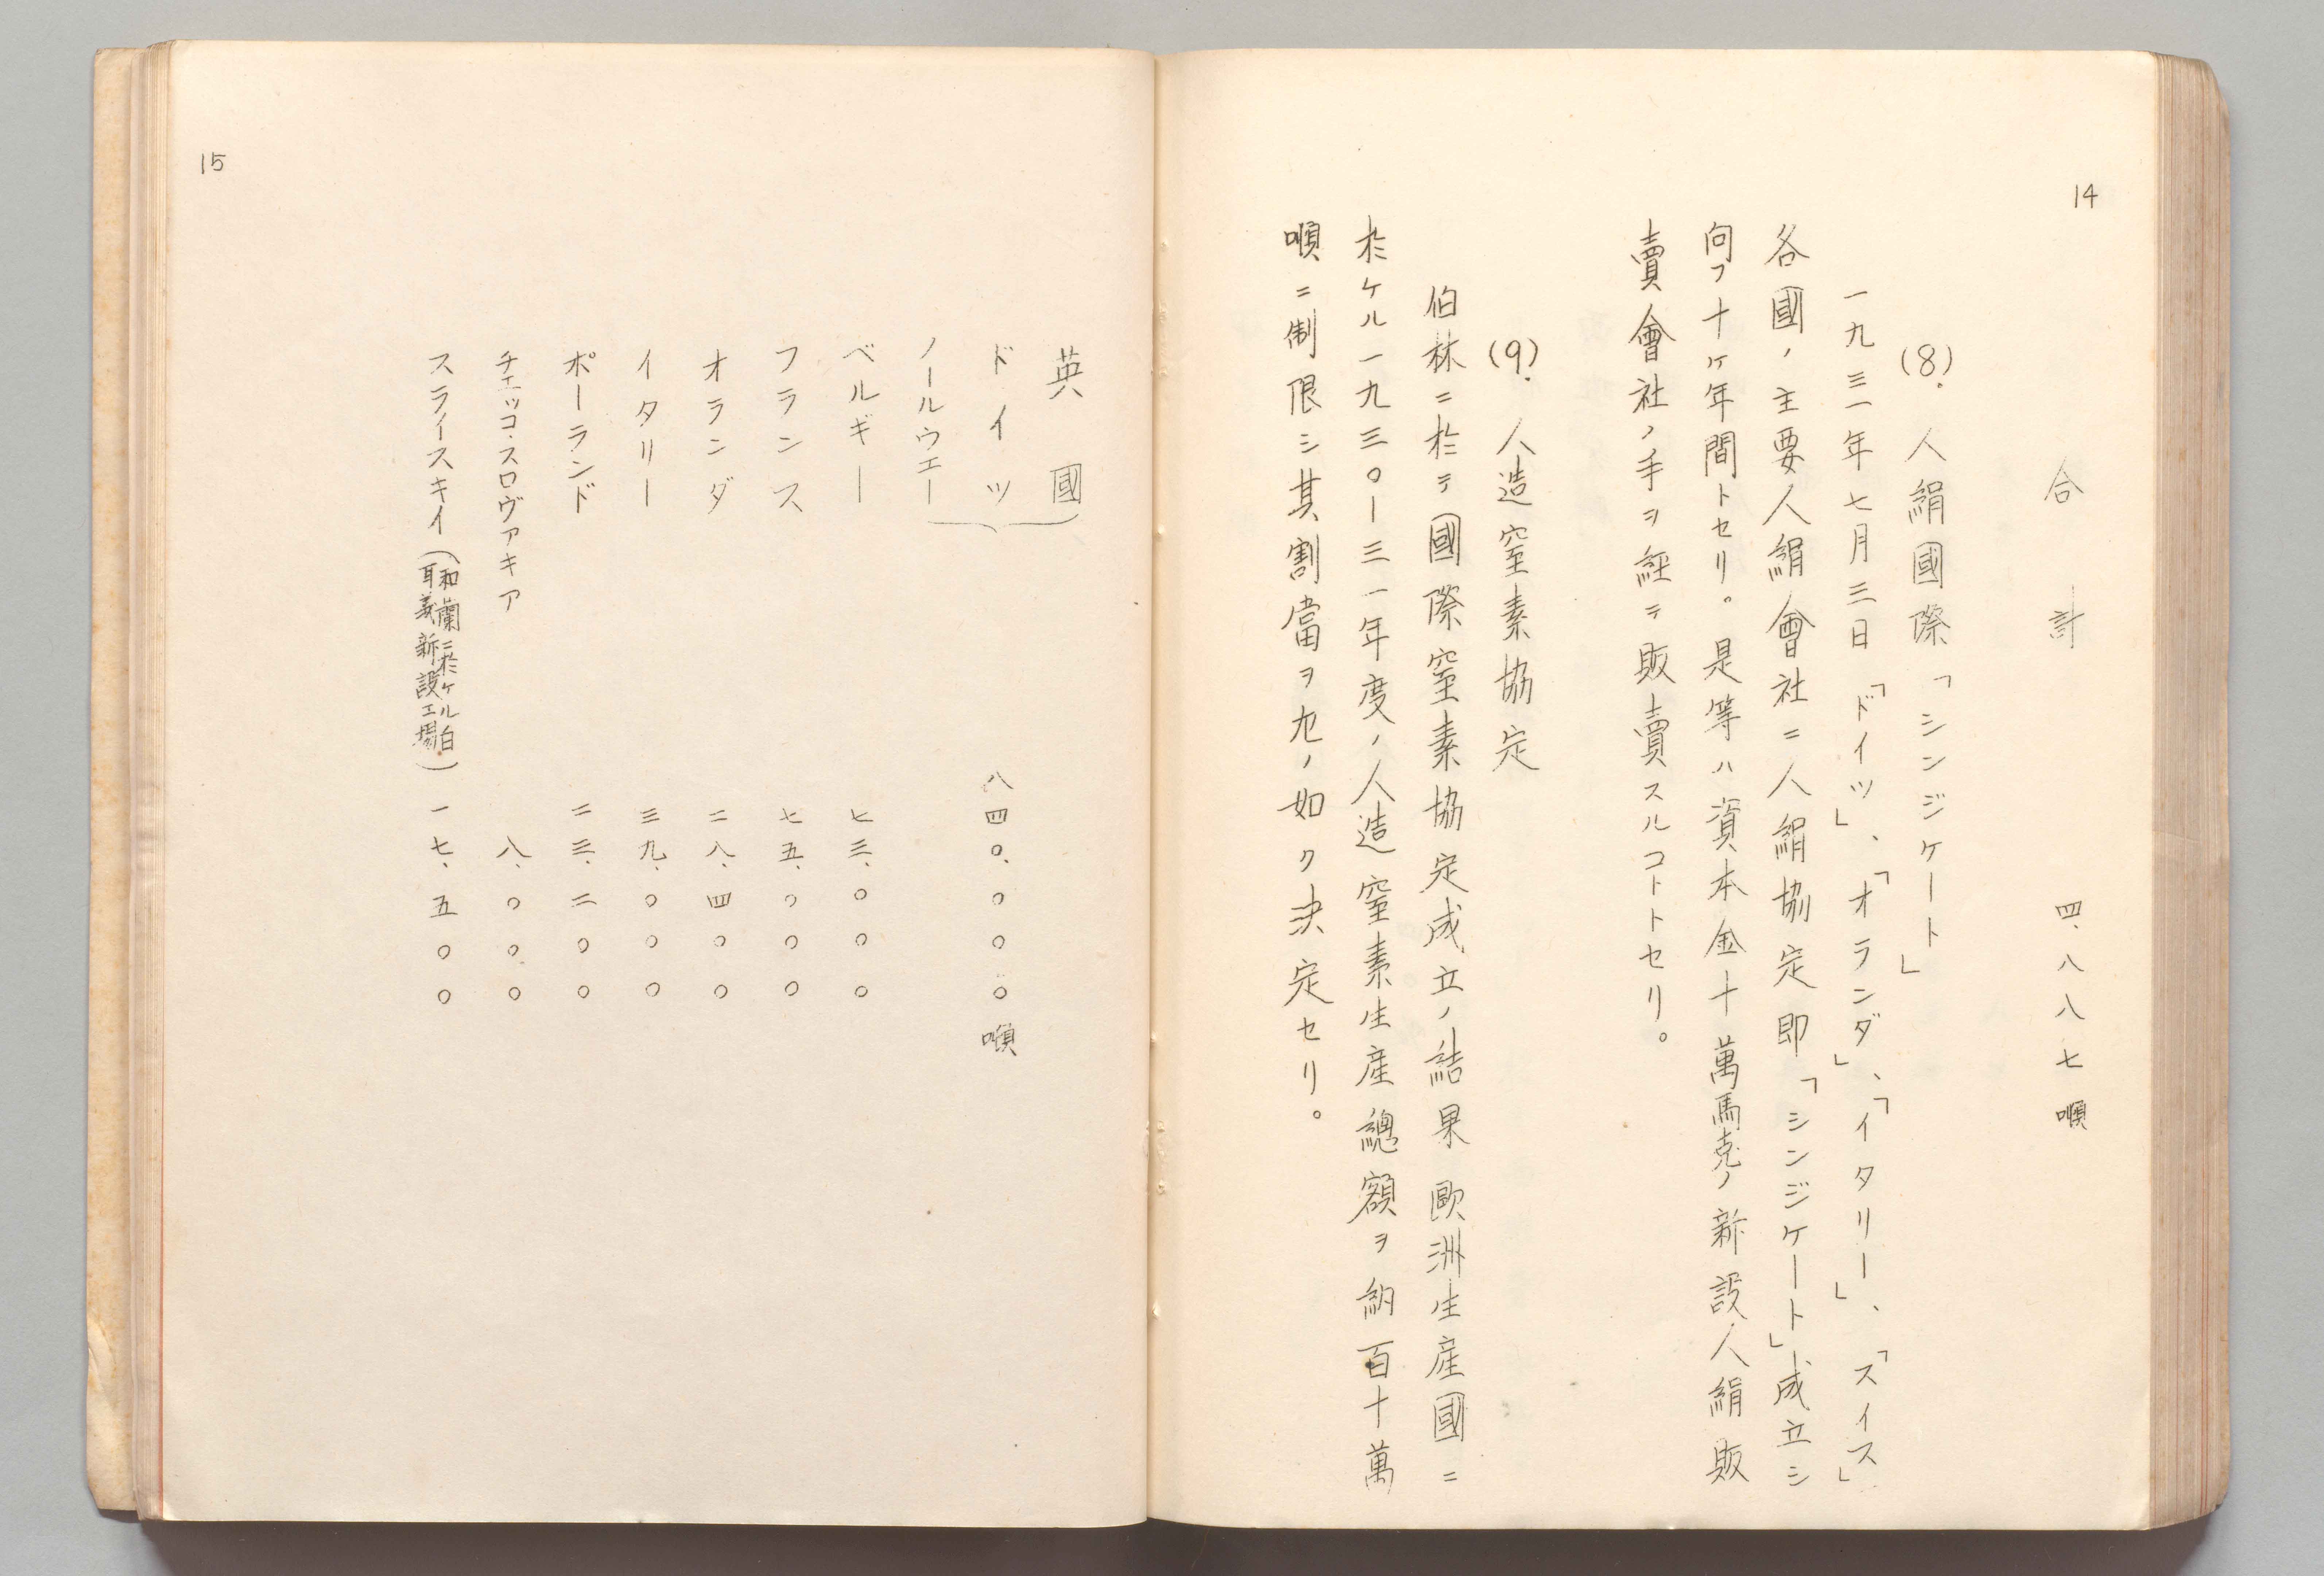 14
合計 四、八八七噸
(8). 人絹國際「シンジケート」
一九三一年七月三日「ドイツ」、「オランダ」、「イタリー」、「スイス」
各國ノ主要人絹會社ニ人絹協定即「シンジケート」成立シ
向フ十ヶ年間トセリ。是等ハ資本金十萬馬克ノ新設人絹販
賣會社ノ手ヲ経テ販賣スルコトトセリ。
(9). 人造窒素協定
伯林ニ於テ國際窒素協定成立ノ結果歐洲生産國ニ
於ケル一九三〇ー三一年度ノ人造窒素生産總額ヲ約百十萬
噸ニ制限シ其割當ヲ左ノ如ク決定セリ。
15
英國
ドイツ 八四〇、〇〇〇噸
ノールウエー
ベルギー 七三、〇〇〇
フランス 七五、〇〇〇
オランダ 二八、四〇〇
イタリー 三九、〇〇〇
ポーランド 二三、二〇〇
チェッコ・スロヴァキア 八、〇〇〇
スライスキイ(和蘭ニ於ケル白耳義新設工場) 一七、五〇〇